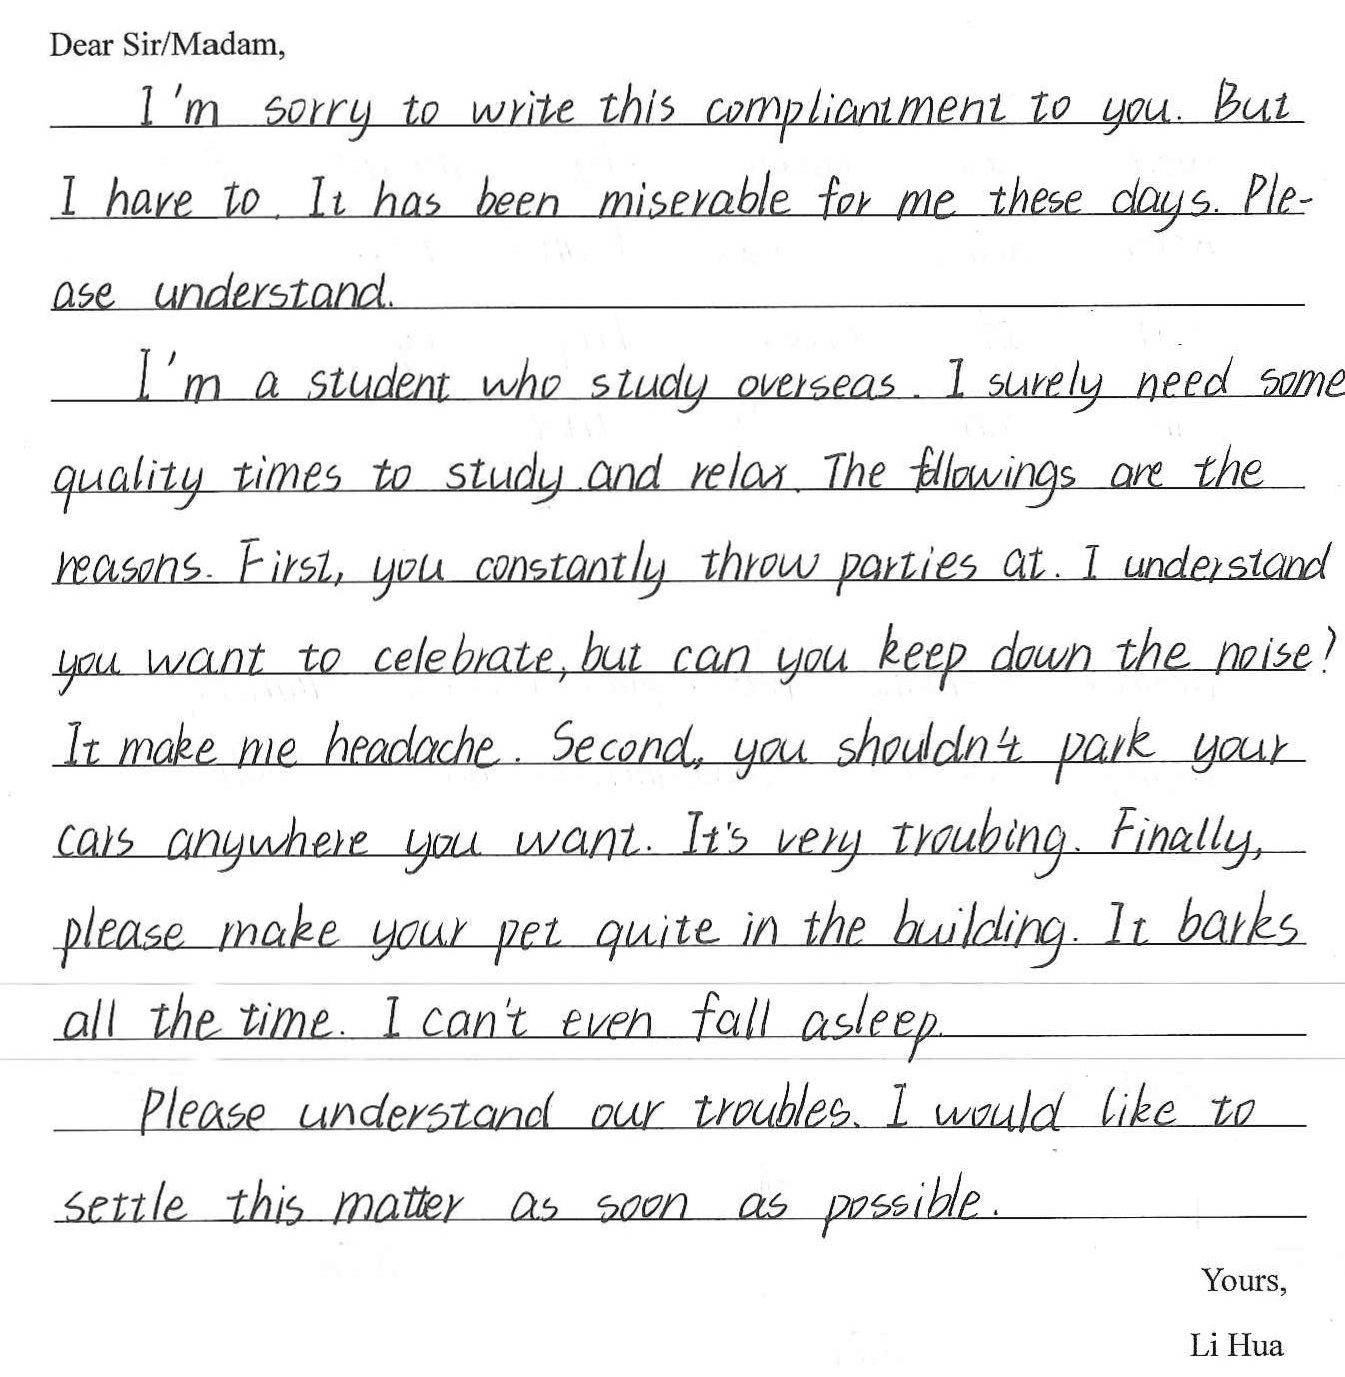 Dear Sir/Madam,
I'm sorry to write this compliantment to you. But
I have to. It has been miserable for me these days. Ple-
ase understand.
I'm a student who study overseas. I surely need some
quality times to study and relax. The fllowings are the
reasons. First, you constantly throw parties at. I understand
you want to celebrate, but can you keep down the noise?
It make me headache. Second, you shouldn't park your
cars anywhere you want. It's very troubing. Finally,
please make your pet quite in the building. It barks
all the time. I can't even fall asleep.
Please understand our troubles. I would like to
settle this matter as soon as possible.
Yours,
Li Hua